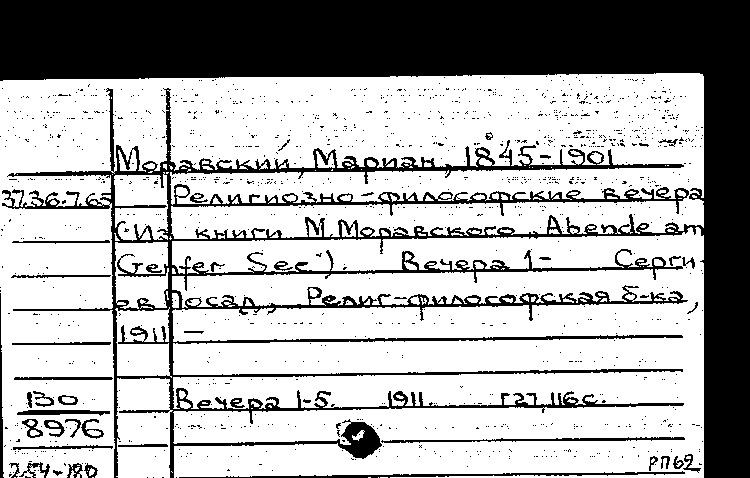 Моравский, Мариан, 1845-1901
37.36.7.65 Религиозно-философские вечера
(Из книги М.Моравского „Abende am
Genfer See"). Вечера 1- Серги-
ев Посад, Религ-философская б-ка,
1911 —
130 Вечера 1-5. 1911. [2], 116 с.
8976
254-180 РП62